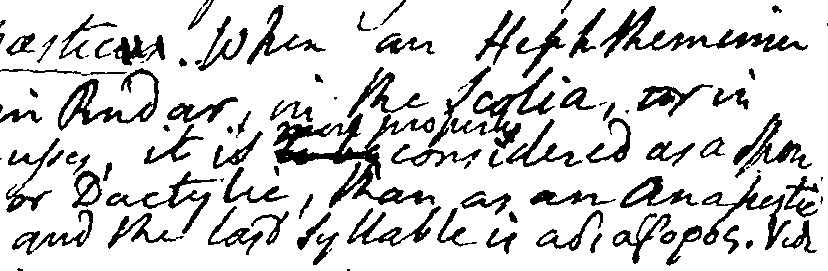 æsticus. When an Hephthemimer
in Pindar, in the Scolia, or in
more properly
upses, it is considered as a Spon
or Dactylic, than as an Anapestic
and the last syllable is αδιαφορος. Vide